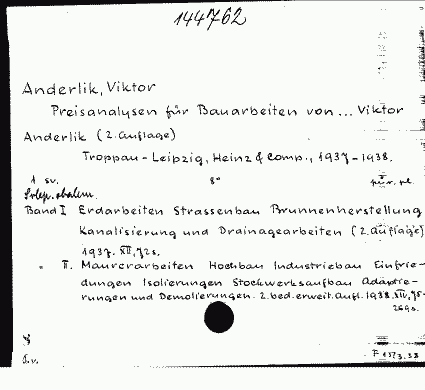 144762
Anderlik, Viktor
Preisanalysen für Bauarbeiten von ... Viktor
Anderlik (2. Auflage)
Troppau-Leipzig, Heinz & Comp., 1937-1938.
1 sv. 8°
Band I Erdarbeiten Strassenbau Brunnenherstellung
Kanalisierung und Drainagearbeiten (2. Auflage)
1937. XII, 72 s.
" II. Maurerarbeiten Hochbau Industriebau Einfrie-
dungen Isolierungen Stockwerksaufbau Adaptie-
rungen und Demolierungen. 2. bed. erweit. Aufl. 1938. XIV, 75-
269 s.